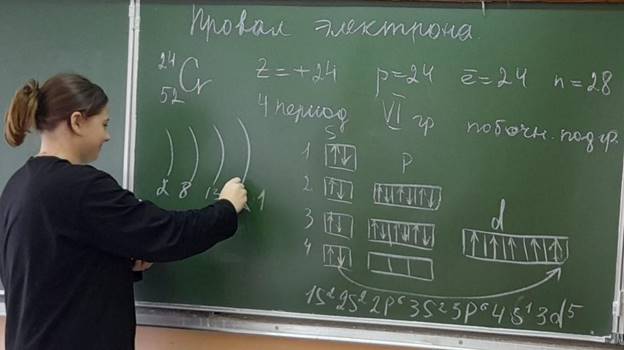 Провал электрона.
24
Cr
52
Z=+24 p=24 ē=24 n=28
4 период VI гр побочн. подгр.
2 8 1
S
P
d
1
2
3
4
1S² 2S² 2p⁶ 3S² 3p⁶ 4S¹ 3d⁵